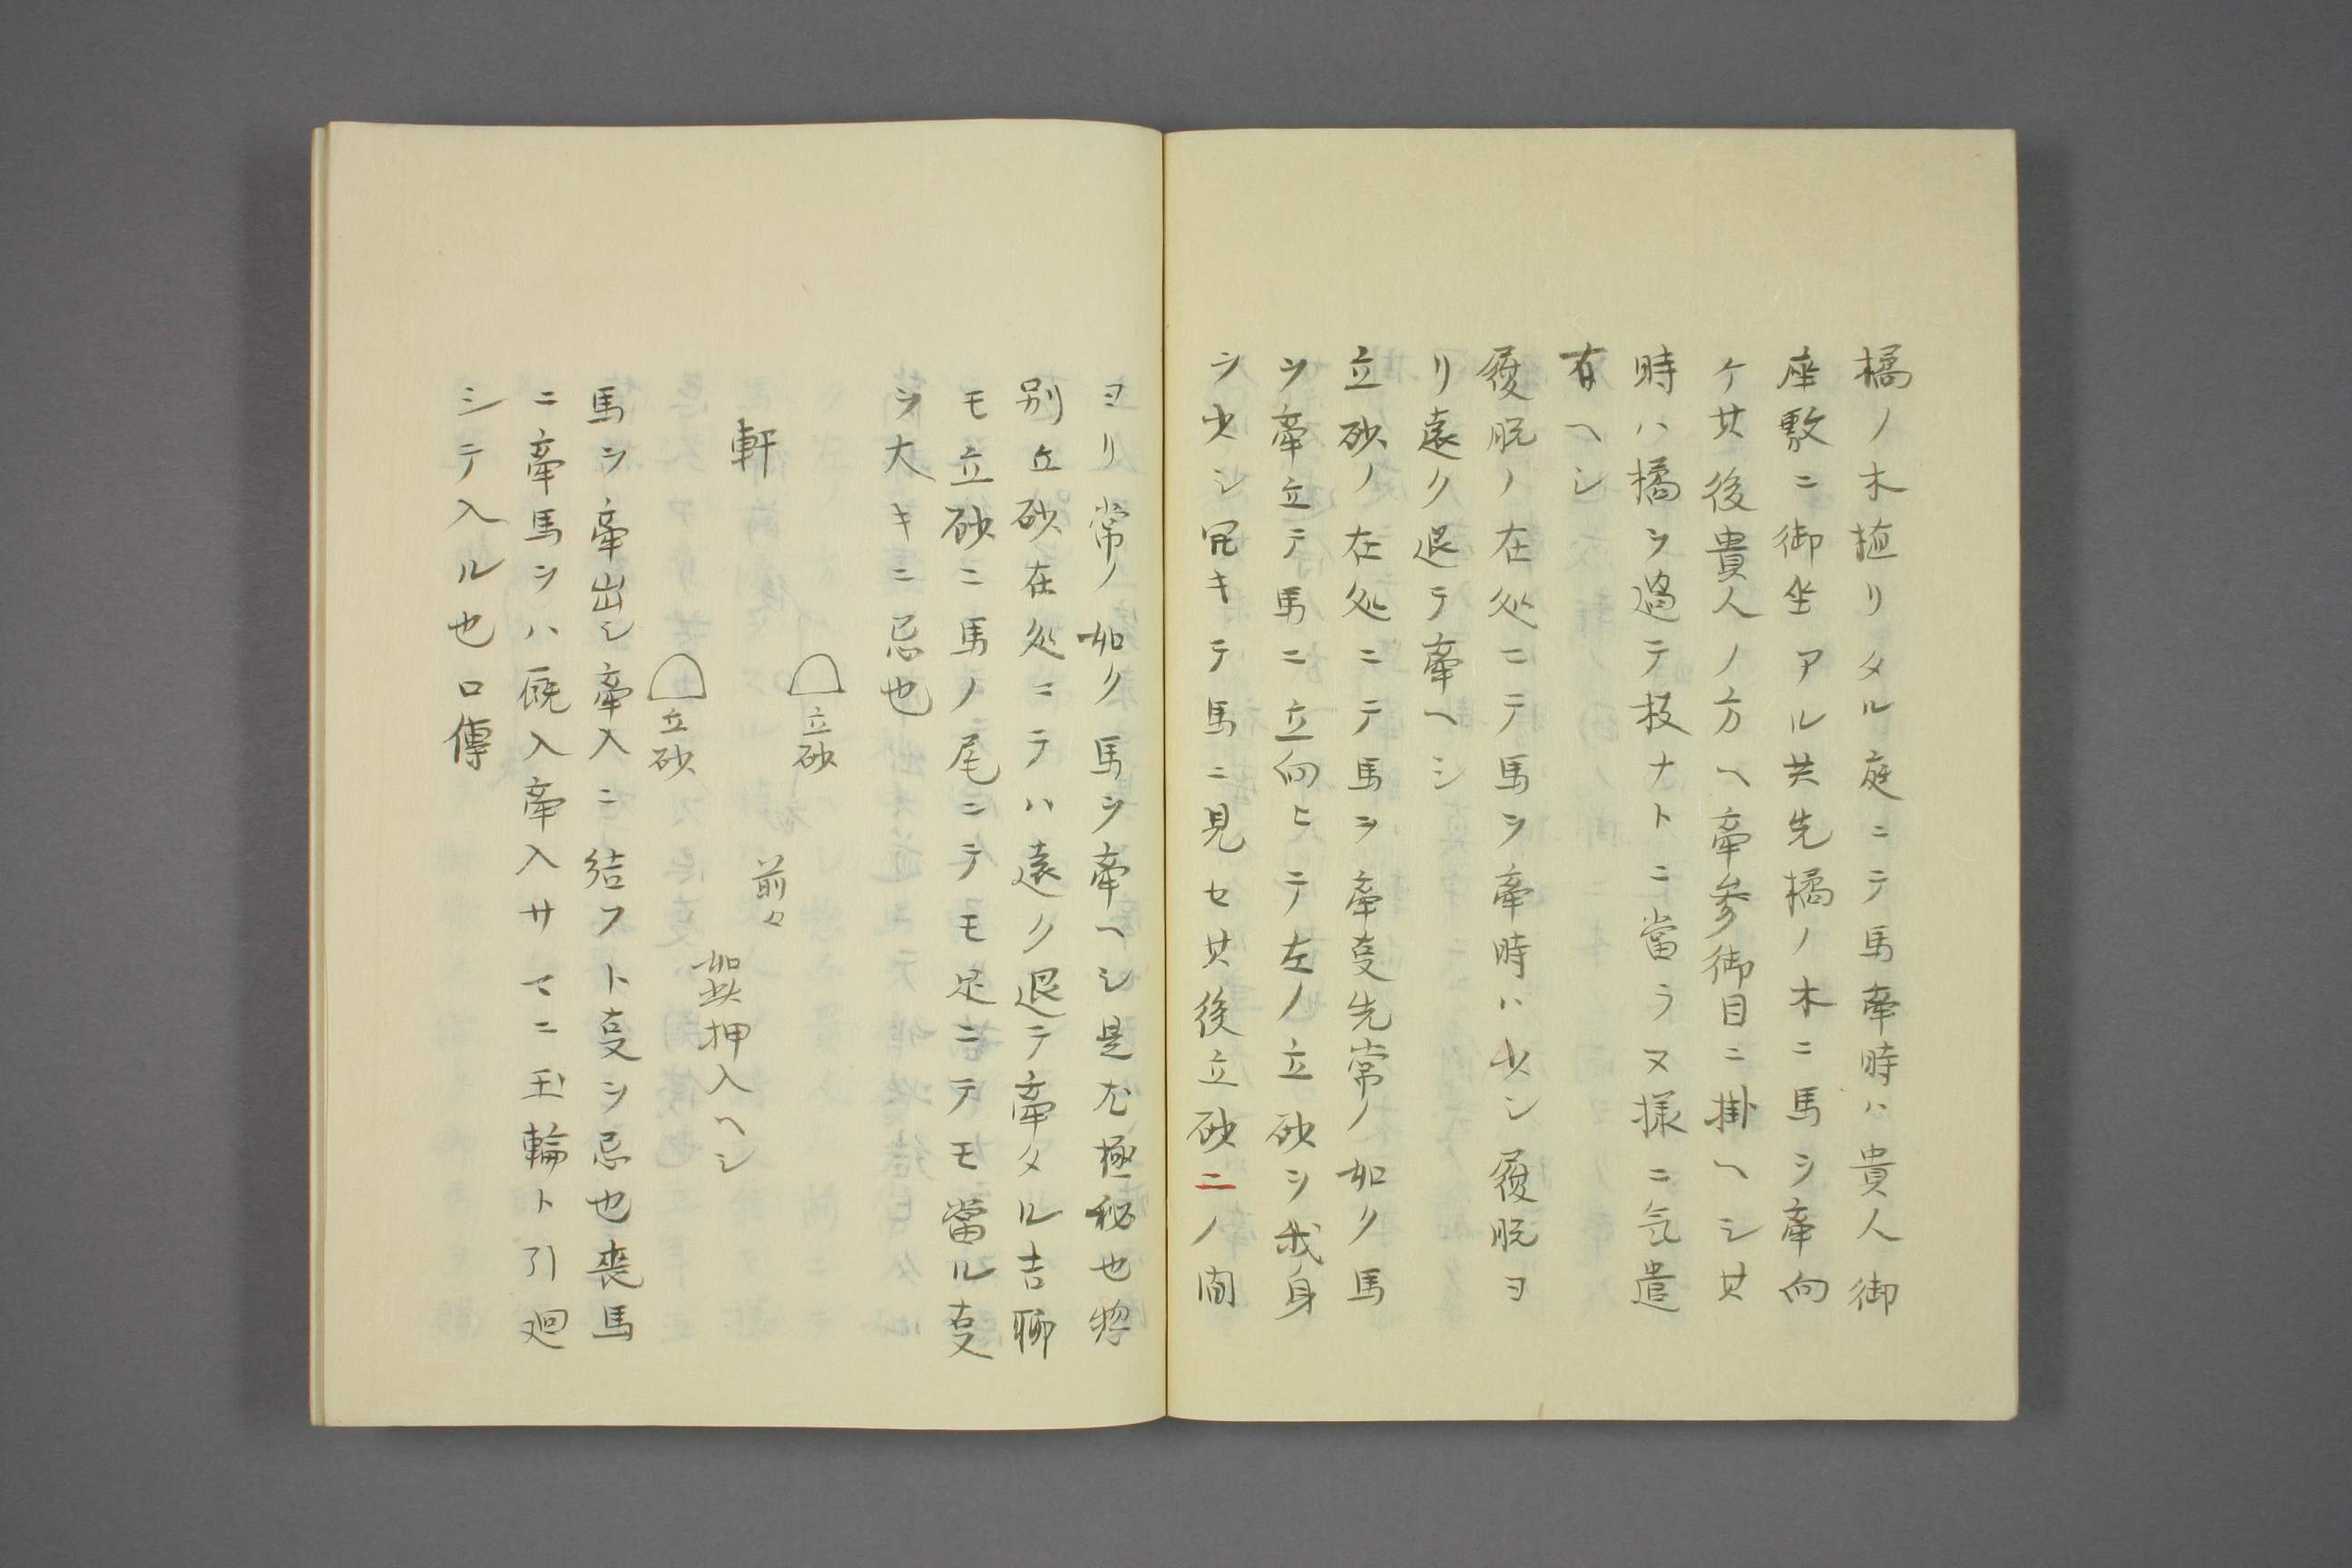 橘ノ木植リタル庭ニテ馬牽時ハ貴人御
座敷ニ御坐アル共先橘ノ木ニ馬ヲ牽向
ケ其後貴人ノ方ヘ牽参御目ニ掛ヘシ其
時ハ橘ヲ過テ枝ナトニ當ラヌ様ニ気遣
有ヘシ
履脱ノ在処ニテ馬ヲ牽時ハ少シ履脱ヨ
リ遠ク退テ牽ヘシ
立砂ノ在処ニテ馬ヲ牽叓先常ノ如ク馬
ヲ牽立テ馬ニ立向ヒテ左ノ立砂ヲ我身
ヲ少シ冗キテ馬ニ見セ其後立砂二ノ間
ヨリ常ノ如ク馬ヲ牽ヘシ是尤極秘也惣
別立砂在処ニテハ遠ク退テ牽タル吉聊
モ立砂ニ馬ノ尾ニテモ足ニテモ當ル叓
ヲ大キニ忌也
立砂
軒
前々
如此押入ヘシ
立砂
馬ヲ牽出シ牽入ニ結フト叓ヲ忌也喪馬
ニ牽馬ヲハ厩入牽入サマニ玉輪ト引廻
シテ入ル也口傳